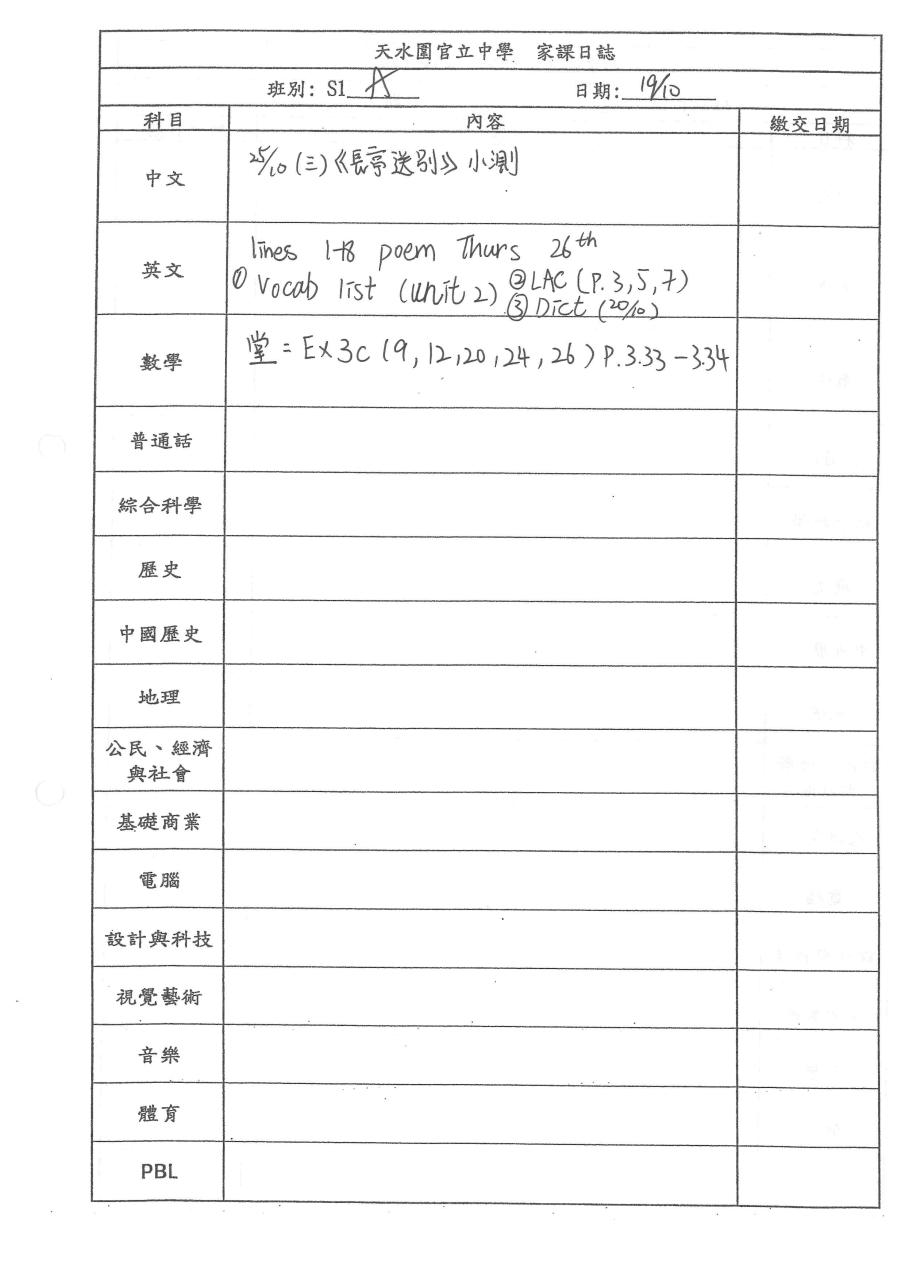 天水圍官立中學 家課日誌
班別: S1 A 日期: 19/10
科目 內容 繳交日期
中文 25/10 (三)《長亭送別》小測
英文 lines 1-18 poem Thurs 26th
① Vocab list (unit 2) ② LAC (P. 3, 5, 7)
③ Dict (20/10)
數學 堂 = Ex 3C (9, 12, 20, 24, 26) P. 3.33 - 3.34
普通話
綜合科學
歷史
中國歷史
地理
公民、經濟
與社會
基礎商業
電腦
設計與科技
視覺藝術
音樂
體育
PBL